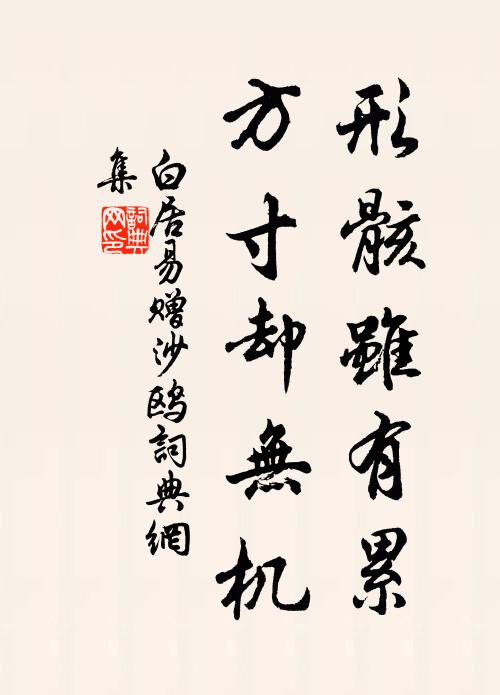 形骸雖有累
方寸却無机
白居易贈沙鸥詞典網
集
詞典
网印